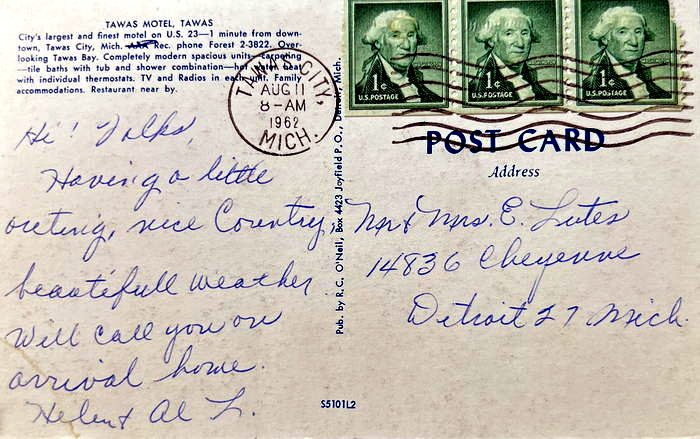 TAWAS MOTEL, TAWAS
City's largest and finest motel on U.S. 23—1 minute from down-
town, Tawas City, Mich. Rec. phone Forest 2-3822. Over-
looking Tawas Bay. Completely modern spacious units—carpeting
—tile baths with tub and shower combination—hot water heat
with individual thermostats. TV and Radios in each unit. Family
accommodations. Restaurant near by.
TAWAS CITY,
AUG 11
8-AM
1962
MICH.
1¢
U.S. POSTAGE
1¢
U.S. POSTAGE
1¢
U.S. POSTAGE
Hi! Folks,
Having a little
outing, nice Country,
beautifull weather
Will call you on
arrival home.
Helen & Al L.
Pub. by R. C. O'Neil, Box 4423 Joyfield P. O., Detroit, Mich.
POST CARD
Address
Mr & Mrs. E. Lutes
14836 Cheyenne
Detroit 27 Mich.
S5101L2